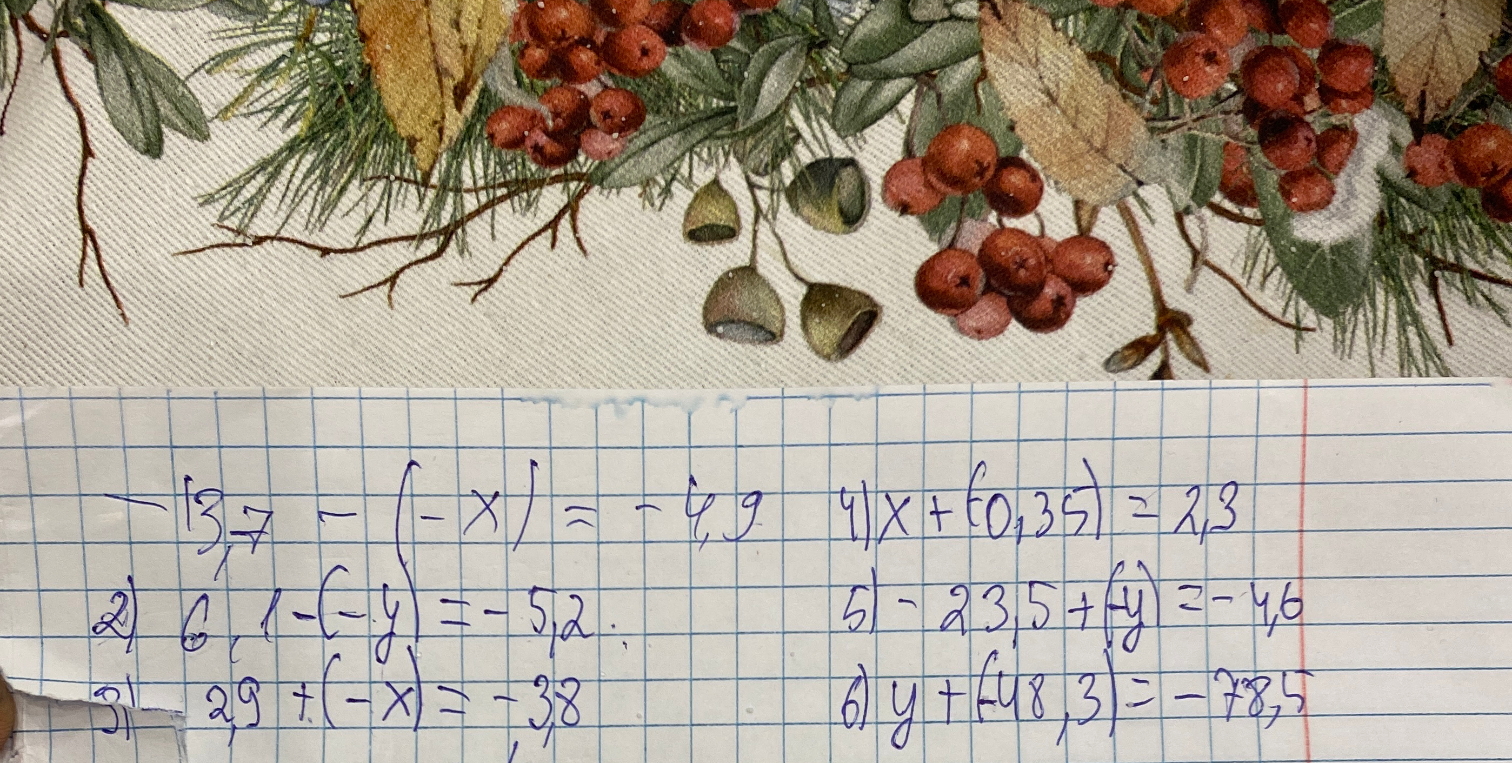 - 13,7 - (- x) = - 4,9
2) 6,1 - (- y) = - 5,2.
3) 2,9 + (- x) = - 3,8
4) x + (-0,35) = 2,3
5) - 23,5 + (-y) = - 4,6
6) y + (-48,3) = - 78,5